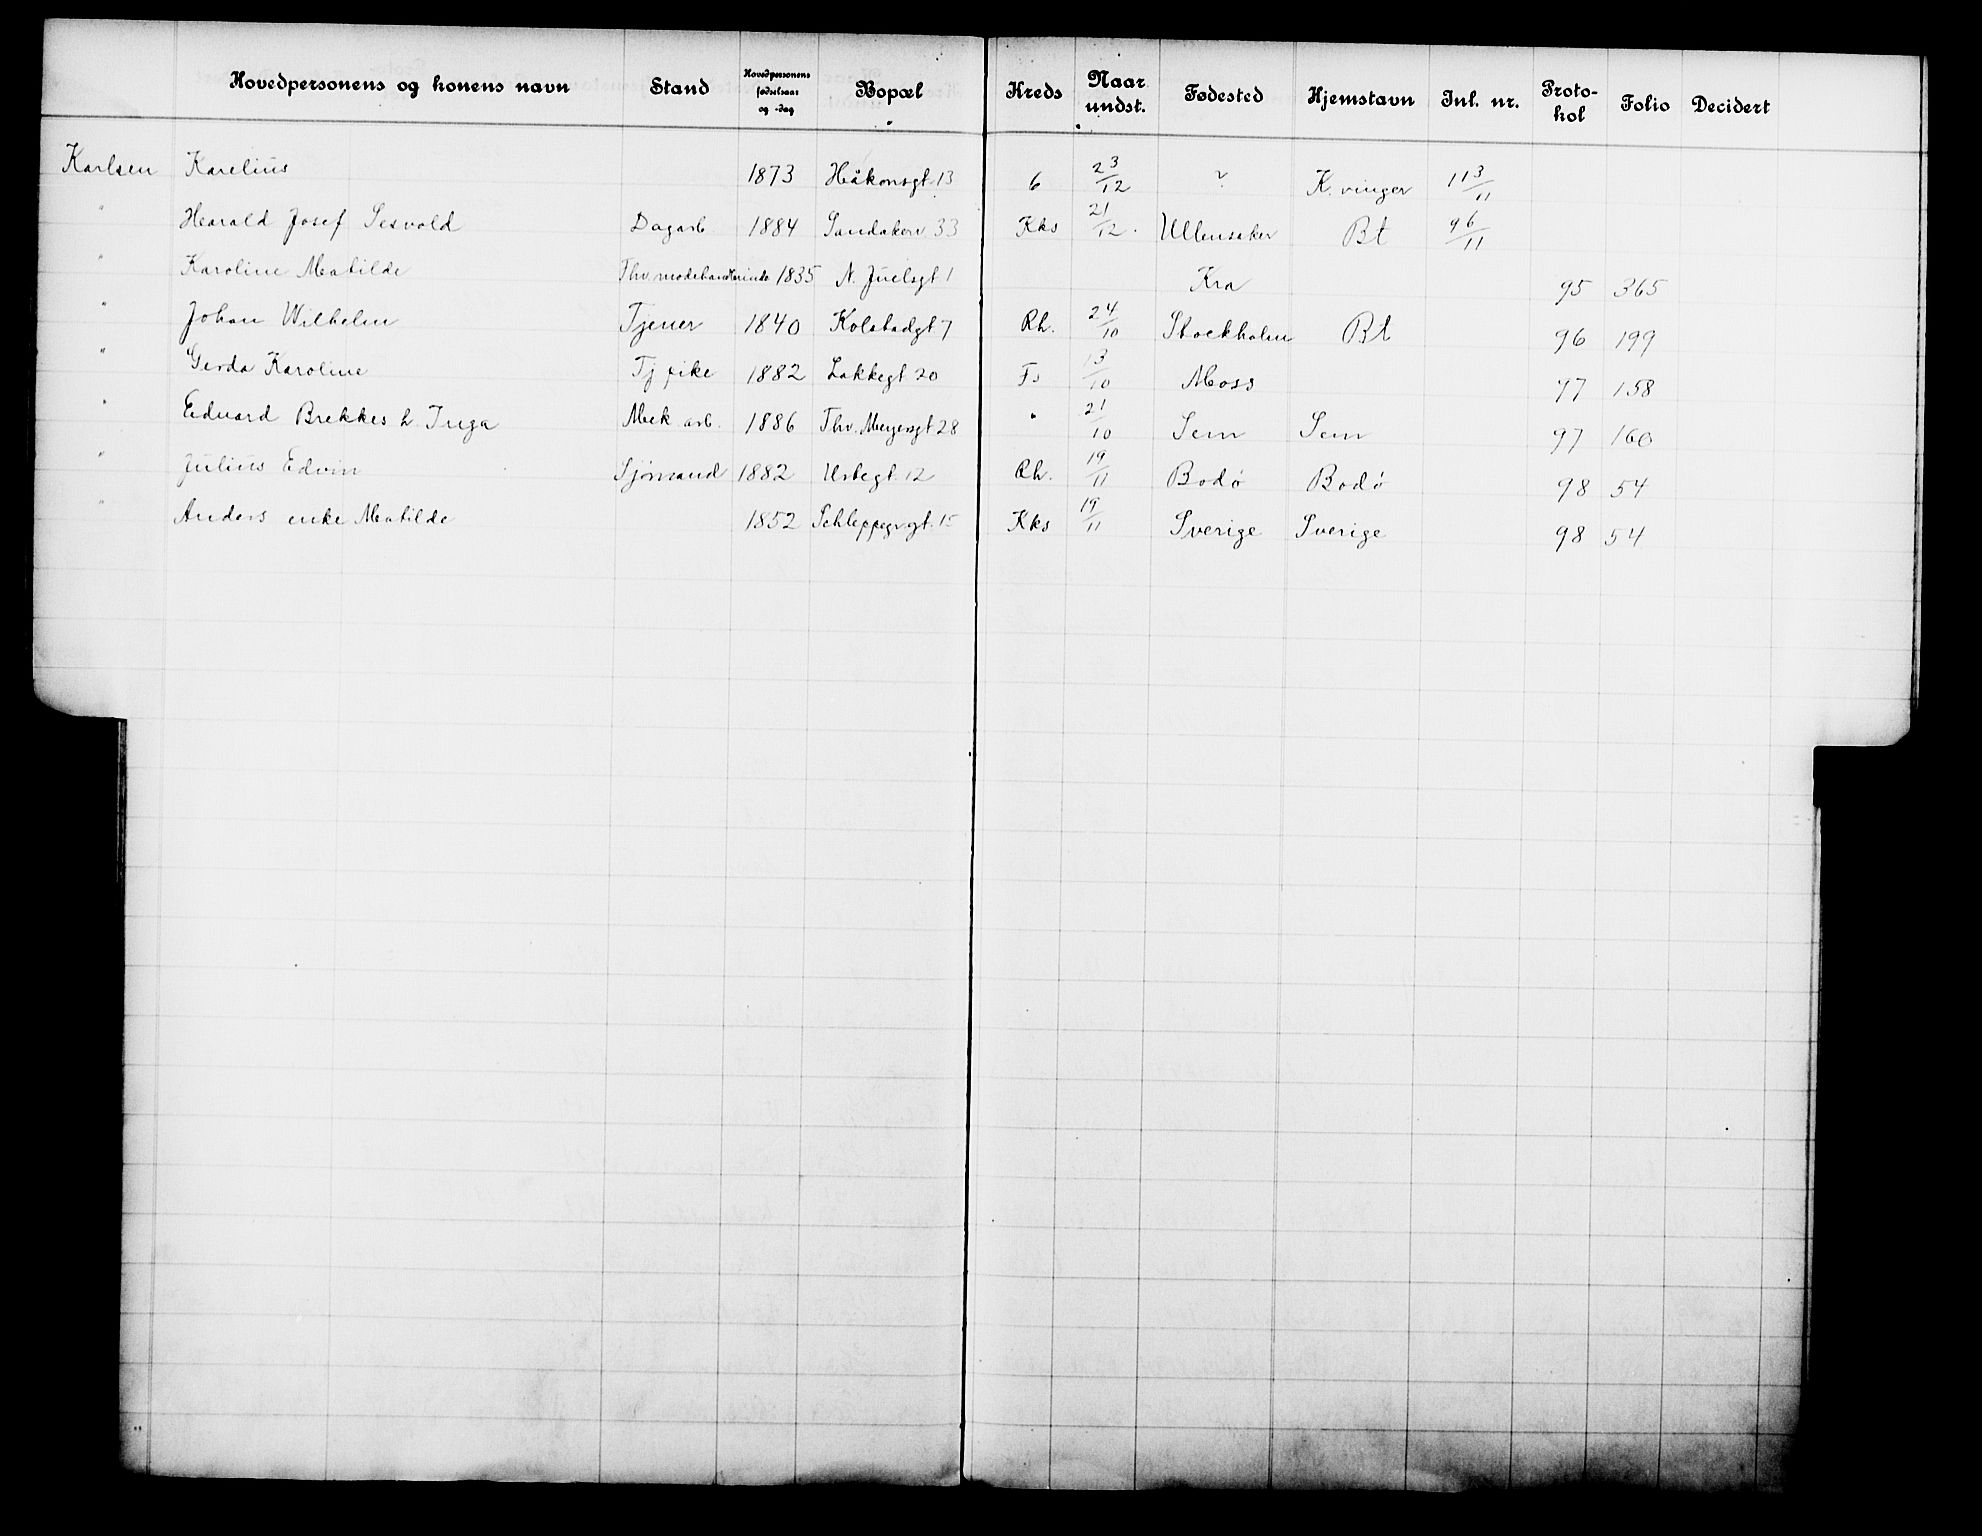 Hovedpersonens og konens navn Stand Hovedpersonens fødselsaar og -dag Bopæl Kreds Naar undst. Fødested Hjemstavn Inl. nr. Protokol Folio Decidert
Karlsen Karelius 1873 Håkonsgt. 13 6 23/12 ? K.vinger 113/11
" Harald Josef Sesvold Dagarb. 1884 Sandakerv. 33 Kks 21/12. Ullensaker Bt 96/11
" Karoline Matilde Fhv. modehandlerinde 1835 N. Juelsgt 1 Kra 95 365
" Johan Wilhelm Tjener 1840 Kolstadgt 7 Rh. 24/10 Stockholm Bt 96 199
" Gerda Karoline Tj pike 1882 Lakkegt 20 Fs 13/10 Moss 97 158
" Edvard Brekkes h. Inga Mek arb. 1886 Thv. Meyersgt 28 " 21/10 Sem Sem 97 160
" Julius Edvin Sjömand 1882 Urtegt 12 Rh. 19/11 Bodø Bodø 98 54
" Anders enke Matilde 1852 Schleppegrgt. 15 Kks 19/11 Sverige Sverige 98 54